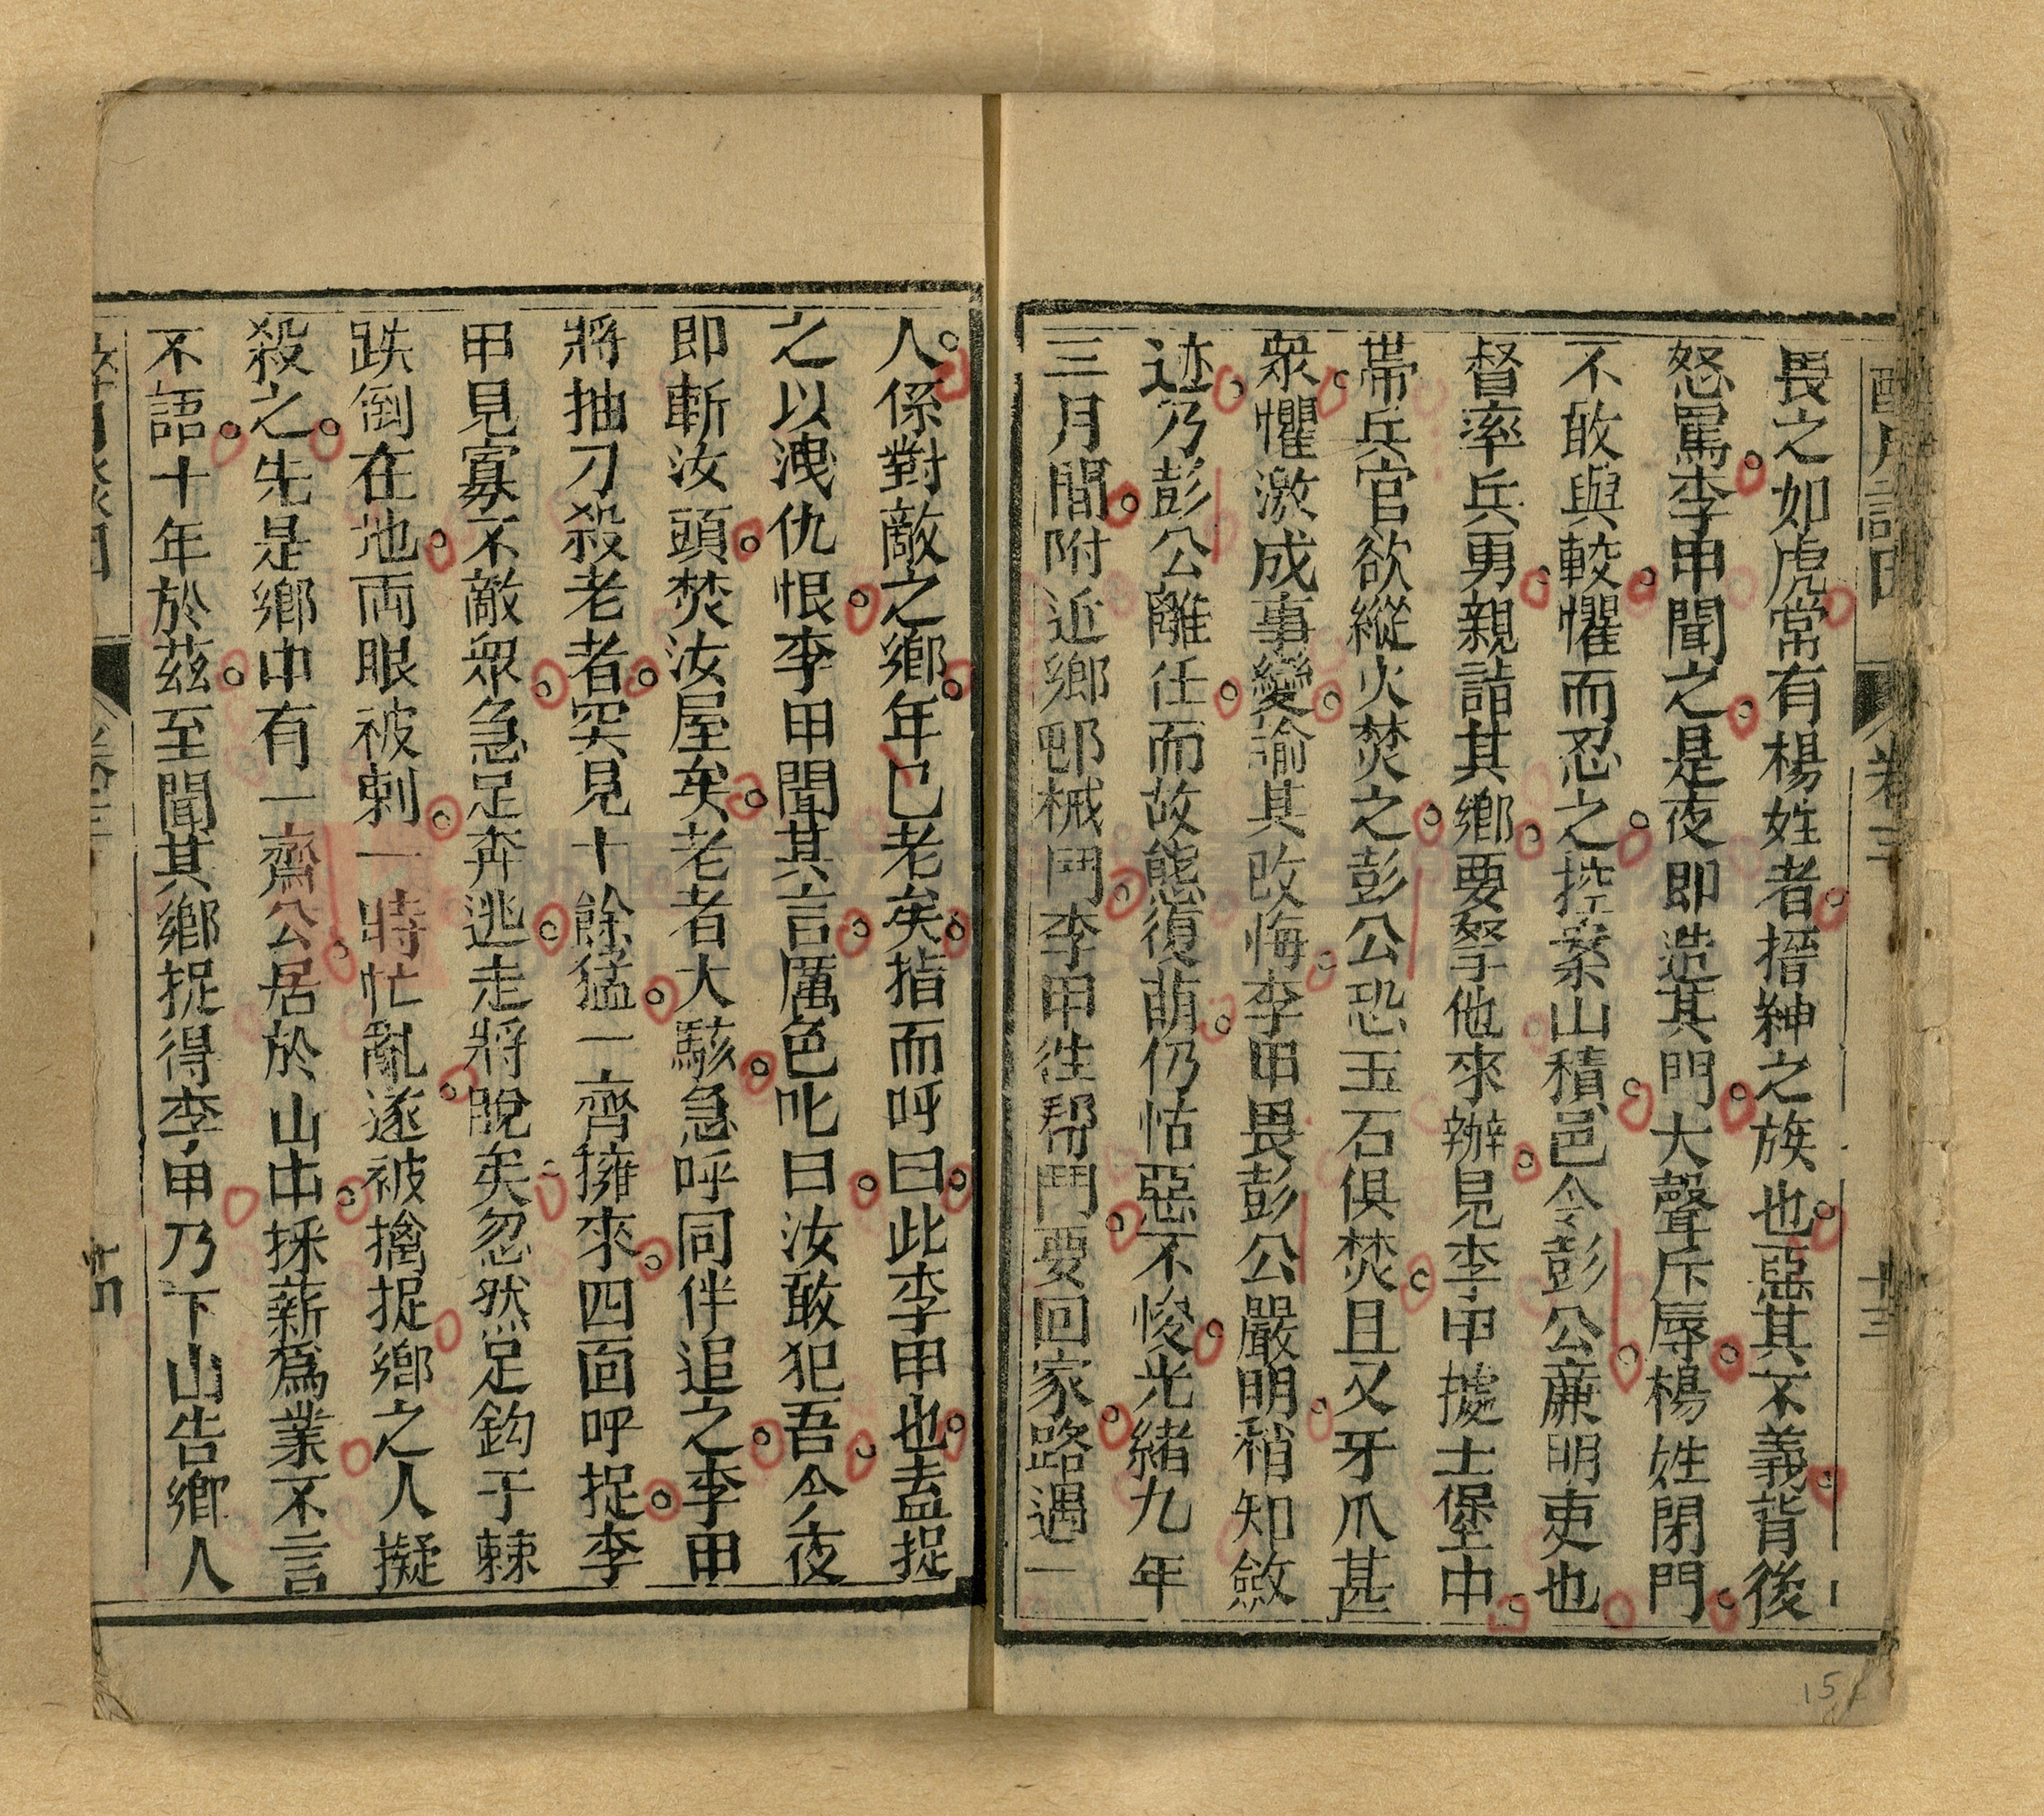 畏之如虎常有楊姓者搢紳之族也惡其不義背後
怒罵李甲聞之是夜即造其門大聲斥辱楊姓閉門
不敢與較懼而忍之控案山積邑令彭公廉明吏也
督率兵勇親詣其鄉要拏他來辦見李甲據土堡中
帶兵官欲縱火焚之彭公恐玉石俱焚且又牙爪甚
衆懼激成事變諭其改悔李甲畏彭公嚴明稍知斂
迹乃彭公離任而故態復萌仍怙惡不悛光緒九年
三月間附近鄉邨械鬥李甲往幫鬥要回家路遇一
卷三
十三
人係對敵之鄉年已老矣指而呼曰此李甲也盍捉
之以洩仇恨李甲聞其言厲色叱曰汝敢犯吾今夜
即斬汝頭焚汝屋矣老者大駭急呼同伴追之李甲
將抽刀殺老者突見十餘猛一齊擁來四面呼捉李
甲見寡不敵衆急足奔逃走將脫矣忽然足鈎于棘
跌倒在地両眼被刺一時忙亂遂被擒捉鄉之人擬
殺之先是鄉中有一齋公居於山中採薪爲業不言
不語十年於茲至聞其鄉捉得李甲乃下山告鄉人
卷三
十四